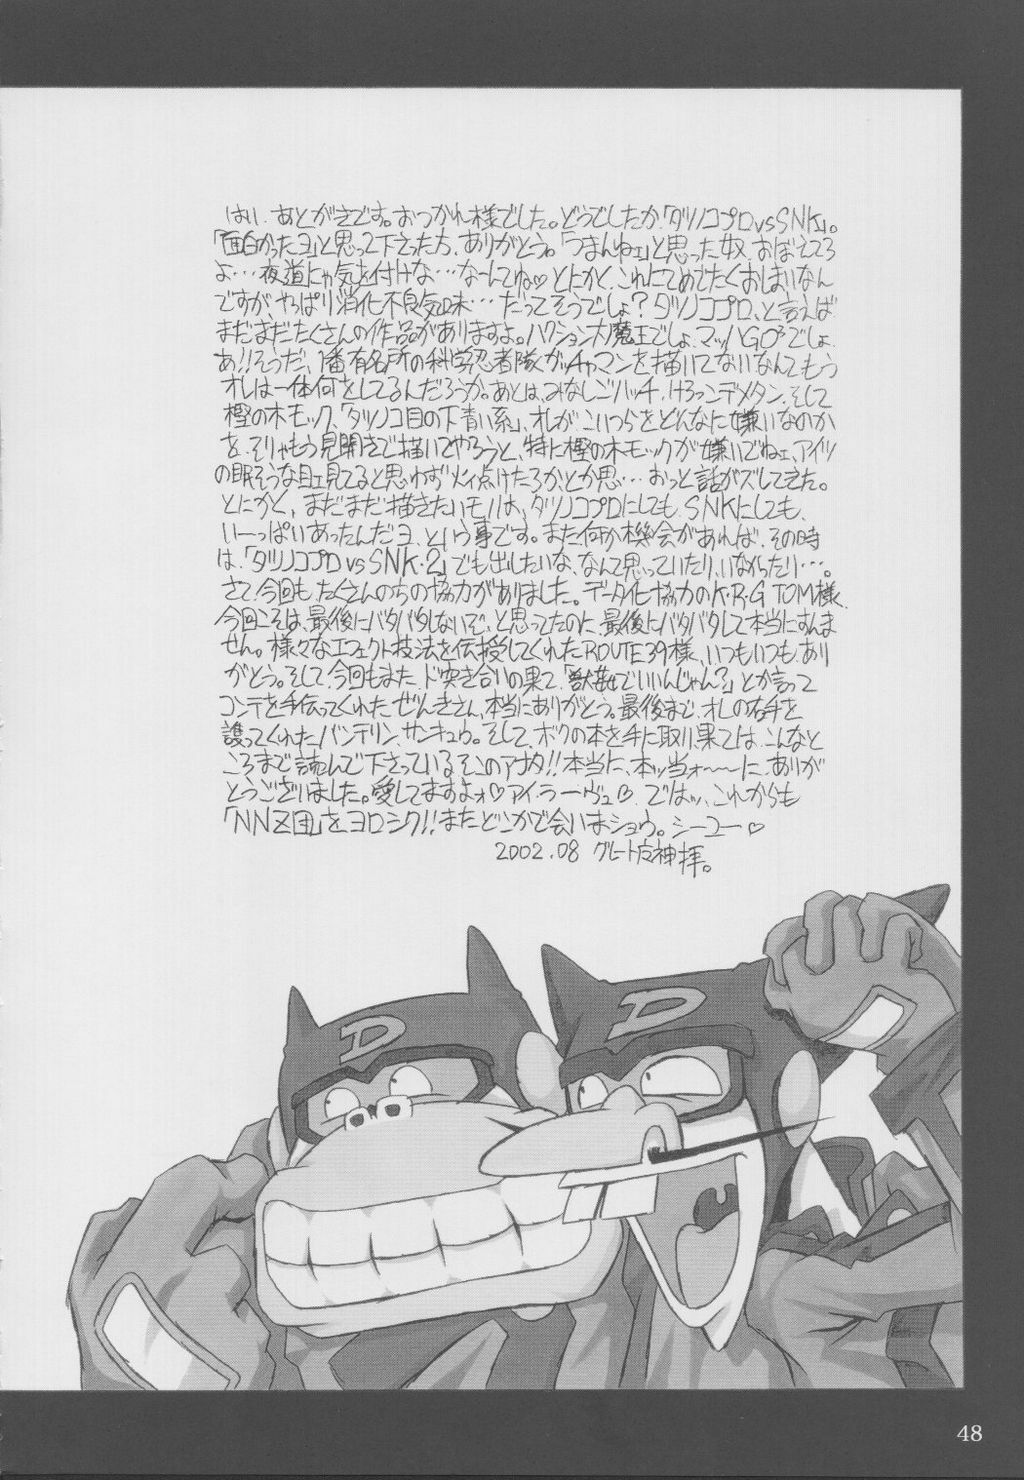 はい、あとがきです。おつかれ様でした。どうでしたか「タツノコプロvsSNK」。
「面白かったヨ」と思って下さった方、ありがとう。「つまんねェ」と思った奴、おぼえてろ
よ…夜道にゃ気を付けな…なーんてね♡とにかく、これにてめでたくおしまいなん
ですが、やっぱり消化不良気味…だってそうでしょ？タツノコプロ、と言えば
まだまだたくさんの作品がありますよ。ハクション大魔王でしょ、マッハGO³でしょ、
あ!!そうだ、1番有名所の科学忍者隊ガッチャマンを描いてないなんてもう
オレは一体何をしてるんだろうか。あとは、みなしごハッチ、けろっこデメタン、そして
樫の木モック、「タツノコ目の下青い系」、オレがこいつらをどんなに嫌いなのか
を、そりゃもう見開きで描いてやろうと、特に樫の木モックが嫌いでねェ、アイツ
の眠そうな目ェ見てると思わず火ィ点けたろか、とか思…おっと話がズレてきた。
とにかく、まだまだ描きたいモノは、タツノコプロにしても、SNKにしても、
いーっぱいあったんだヨ、という事です。また何か機会があれば、その時
は、「タツノコプロvsSNK・2」でも出したいな、なんて思っていたり、いなかったり…。
さて、今回も、たくさんのちの協力がありました。データ化協力のK・R・G TOM様、
今回こそは、最後にバタバタしないぞ、と思ってたのに、最後にバタバタして本当にすんま
せん。様々なエフェクト技法を伝授してくれたROUTE39様、いつもいつも、あり
がとう。そして、今回もまた、ド突き合いの果て、「獣姦でいいんじゃん？」とか言って
コンテを手伝ってくれた、ぜんきさん、本当にありがとう。最後まで、オレの右手を
護ってくれたバンテリン、サンキュウ。そして、ボクの本を手に取り、果ては、こんなと
ころまで読んで下さっているそこのアナタ!!本当に、本ッ当ォ〜〜に、ありが
とうございました。愛してますよォ♡アイラーヴュ♡ではッ、これからも
「NNZ団」をヨロシク!!またどこかで会いまショウ。シーユー♡
2002.08 グレート 神 拝。
D
D
48